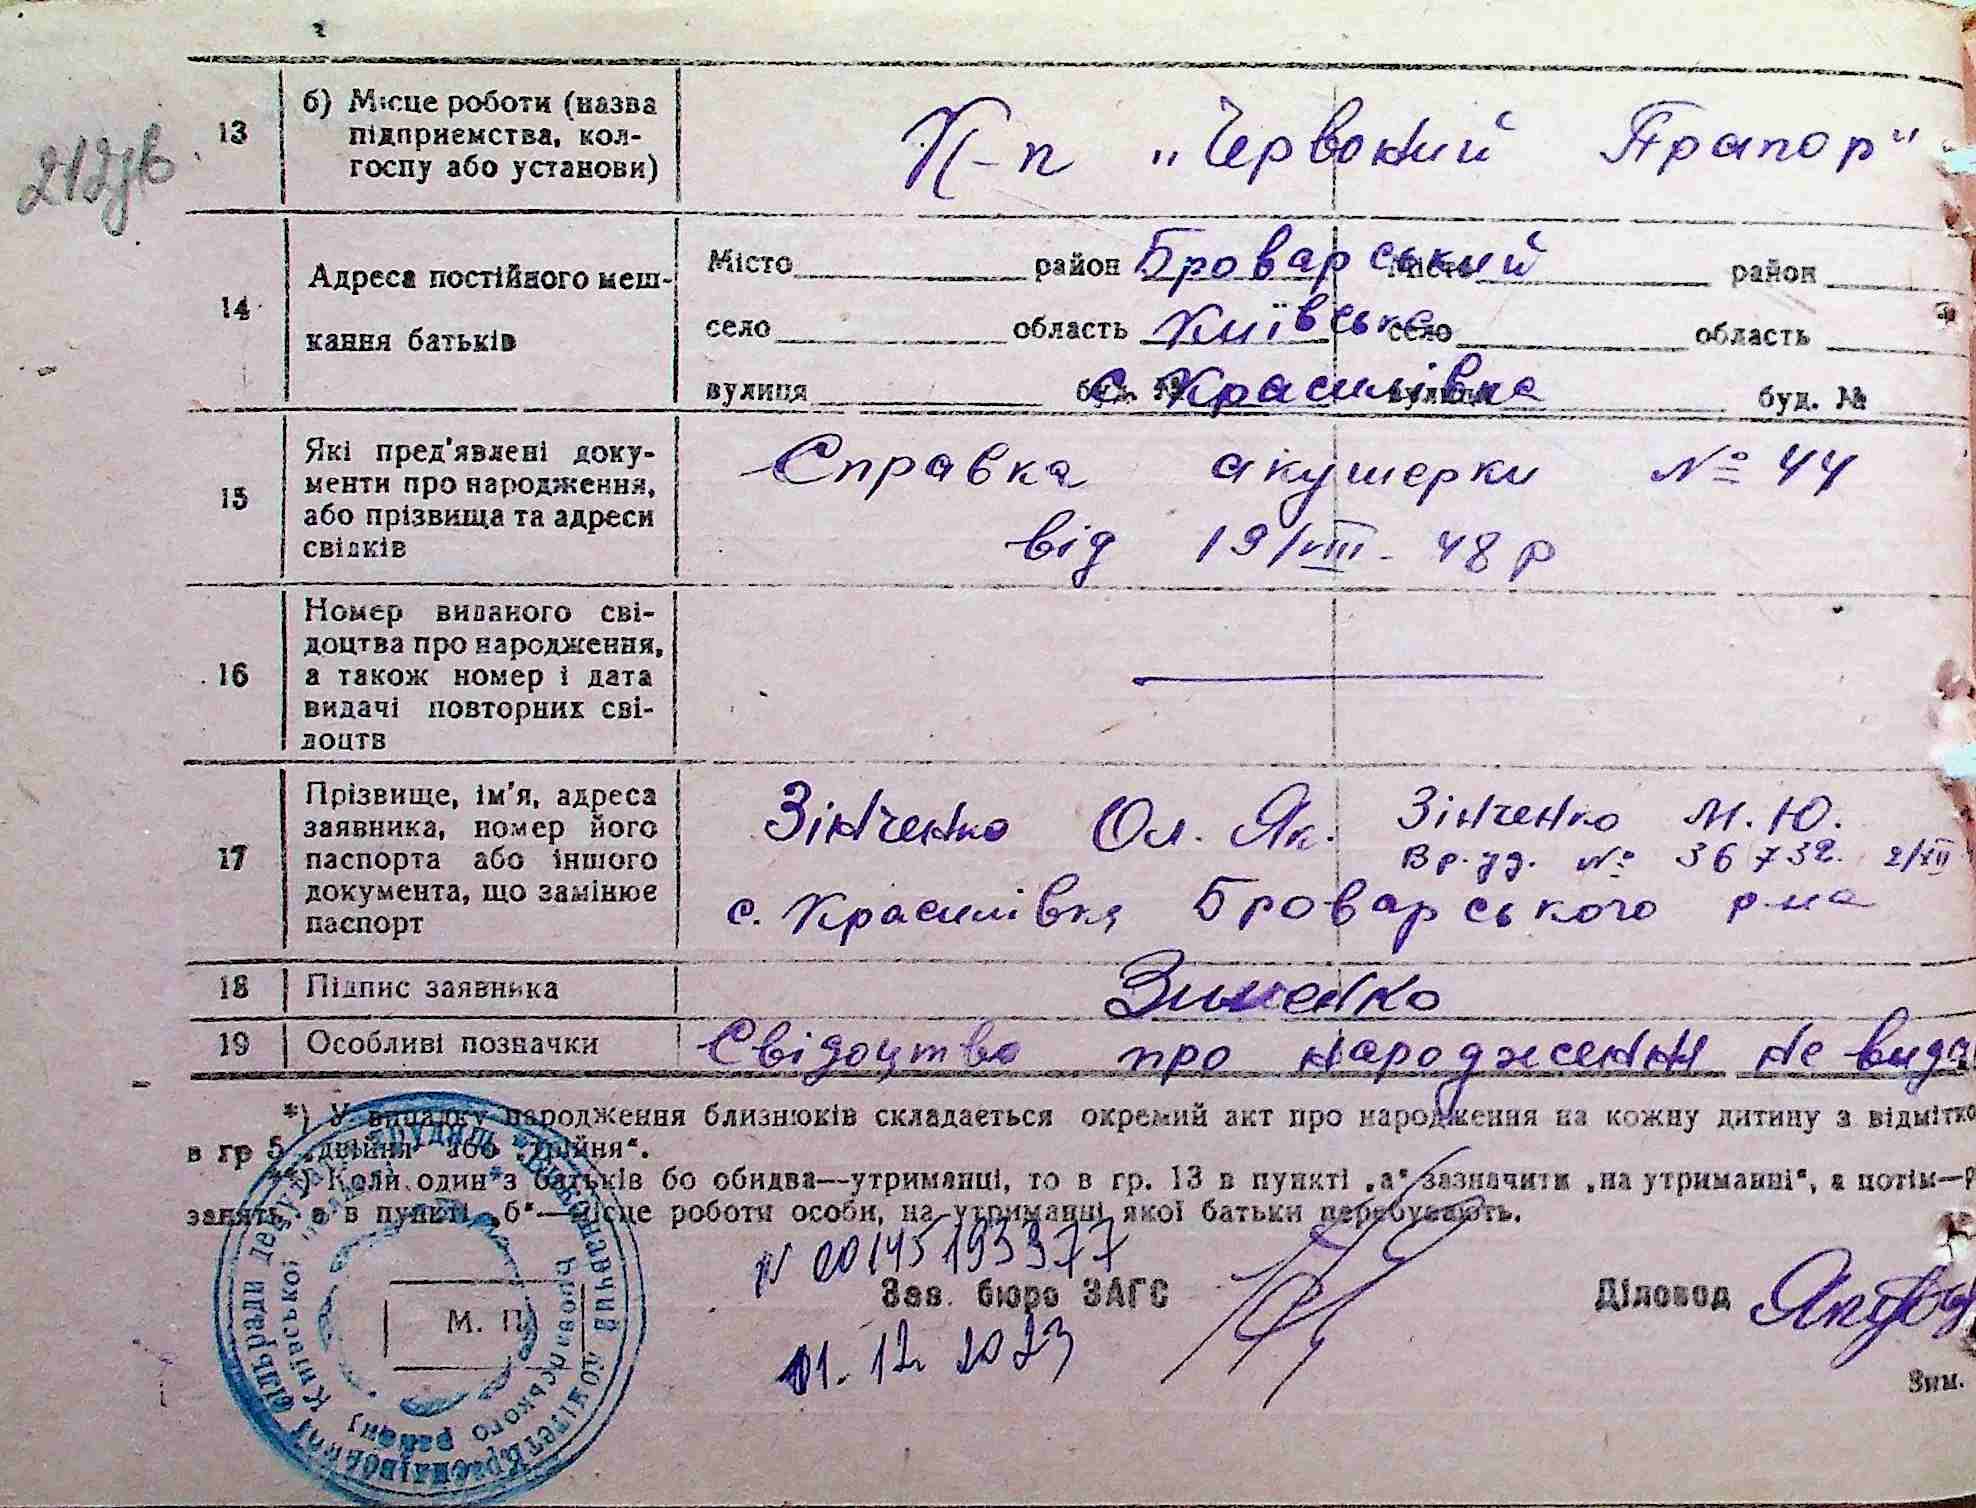 13
б) Місце роботи (назва
підприємства, кол-
госпу або установи)
К-п „Червоний Прапор"
14
Адреса постійного меш-
кання батьків
Місто район Броварський Місто район
село область Київська село область
вулиця буд. № с. Красилівка вулиця буд. №
15
Які пред'явлені доку-
менти про народження,
або прізвища та адреси
свідків
Справка акушерки № 44
від 19/VIII - 48 р
16
Номер виданого сві-
доцтва про народження,
а також номер і дата
видачі повторних сві-
доцтв
17
Прізвище, ім'я, адреса
заявника, номер його
паспорта або іншого
документа, що замінює
паспорт
Зінченко Ол. Як. Зінченко М. Ю.
Вр. уд. № 36732. 2/XII
с. Красилівка Броварського р-на
18 Підпис заявника
19 Особливі позначки Свідоцтво про народження не вида
*) У випадку народження близнюків складається окремий акт про народження на кожну дитину з відмітко
в гр 5 „двійня" або „трійня".
**) Коли один з батьків бо обидва—утриманці, то в гр. 13 в пункті „а" зазначити „на утриманні", а потім—Р
занять, а в пункті „б"—місце роботи особи, на утриманні якої батьки перебувають.
N 00145193977
Зав. бюро ЗАГС
Діловод
М. П.
01.12.2023
Зим.
Виконавчий комітет Красилівської сільради депутатів трудящих
Броварського району Київської